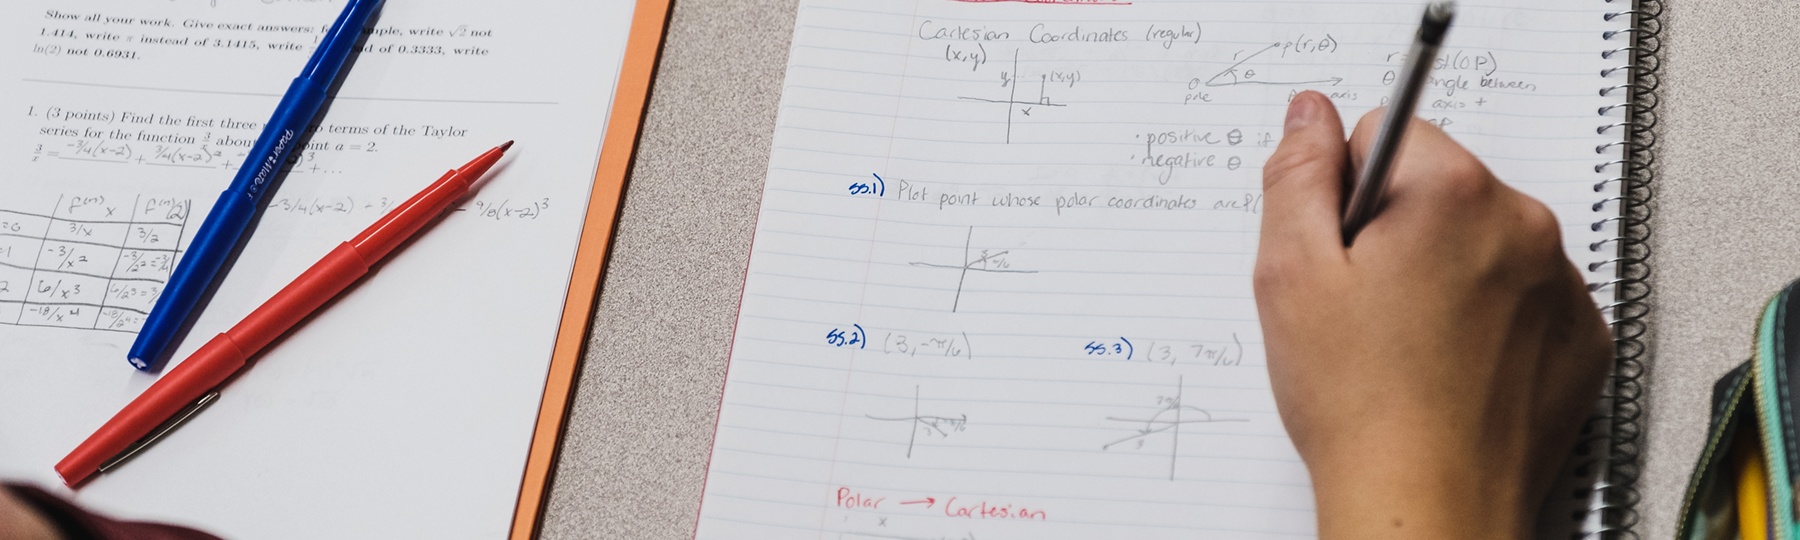 Show all your work. Give exact answers: mple, write √2 not
1.414, write π instead of 3.1415, write ad of 0.3333, write
ln(2) not 0.6931.
1. (3 points) Find the first three terms of the Taylor
series for the function 3/x about point a = 2.
3/x = -3/4(x-2) + 3/4(x-2)² + 3 + ...
-3/4(x-2) + 3/ 9/8(x-2)³
f⁽ⁿ⁾x f⁽ⁿ⁾(2)
=0 3/x 3/2
-3/x² -3/2² = -3/4
2 6/x³ 6/2³ = 3/
-18/x⁴ -18/2⁴ =
PaperMate
Cartesian Coordinates (regular)
(x,y)
y (x,y)
x
r p(r,θ)
θ
O
pole axis
r st(OP)
θ ngle between
axis +
OP
• positive θ if
• negative θ
SS.1) Plot point whose polar coordinates are P(
3 π/6
SS.2) (3, -π/6) SS.3) (3, 7π/6)
3 -π/6
7π/6
3
Polar → Cartesian
x